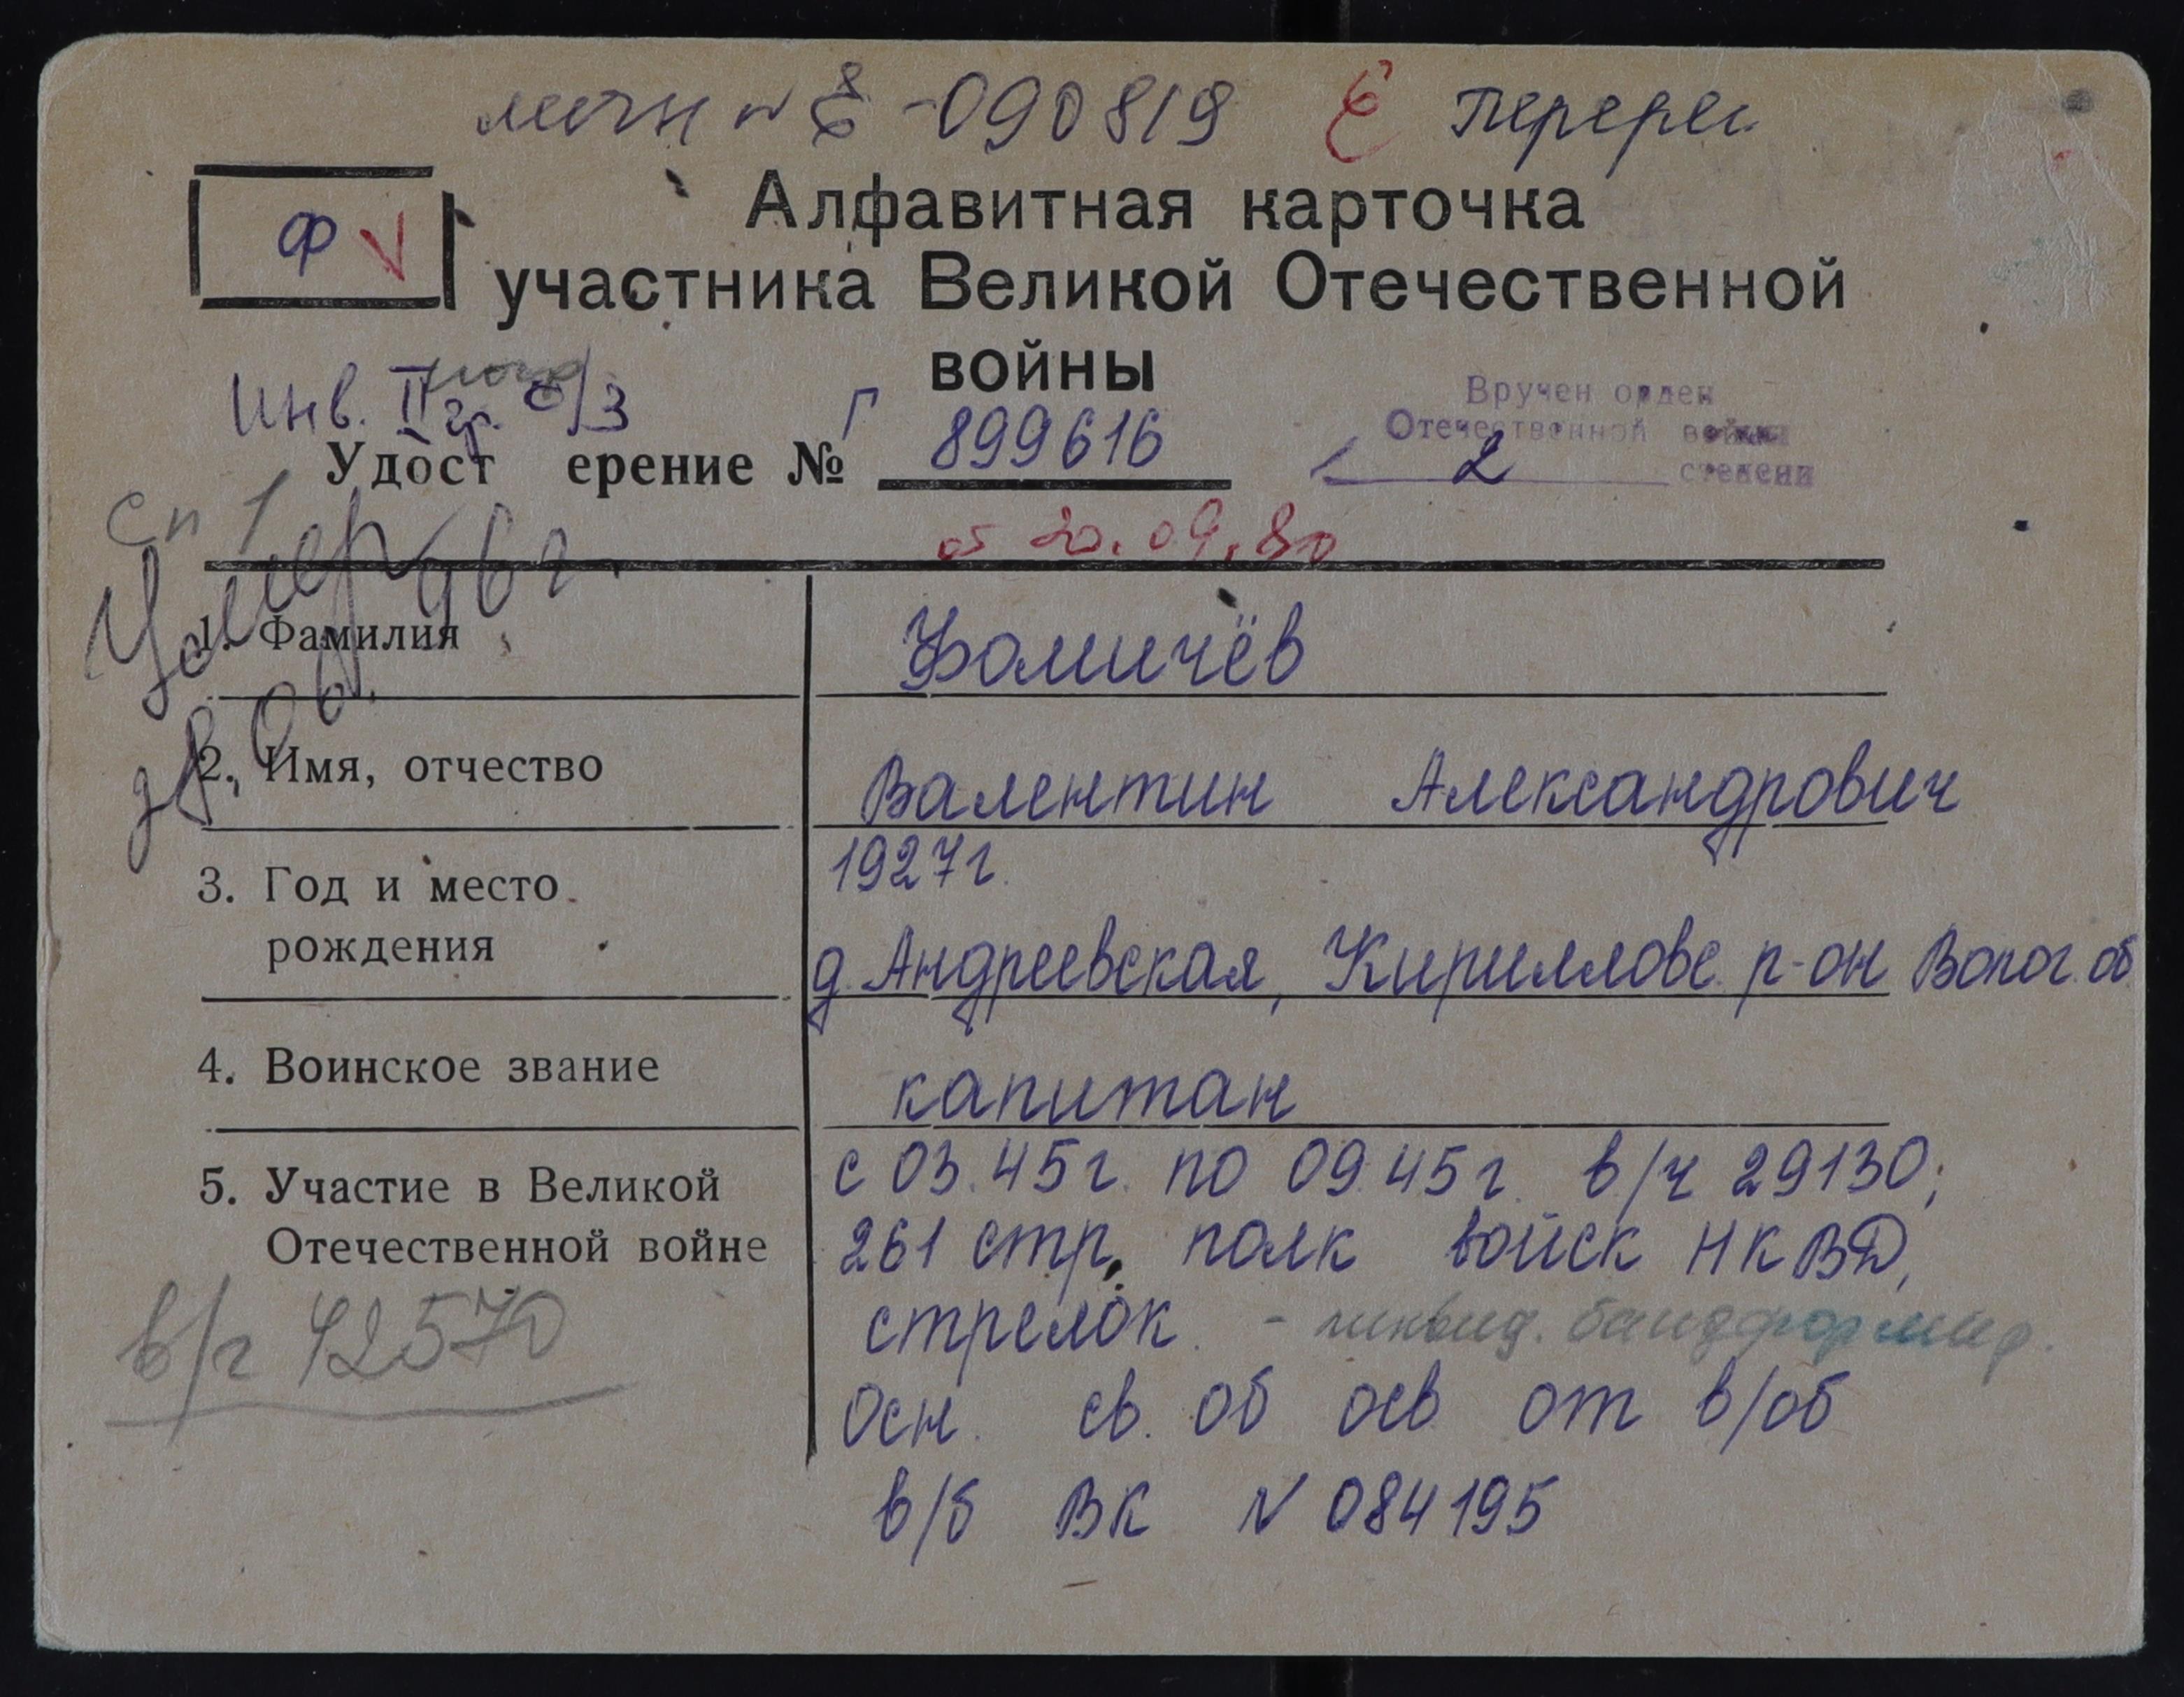 Е -090819 Е перерег
Ф V
Алфавитная карточка
участника Великой Отечественной
войны
Инв. II гр. о/з
Вручен орден
Отечественной войны
2 степени
Удост ерение № Г 899616
Сп 1
от 20.09.80
Умер 96г.
1. Фамилия Фомичёв
2. Имя, отчество Валентин Александрович
3. Год и место рождения 1927г.
д. Андреевская, Кирилловс. р-он Волог. об.
4. Воинское звание капитан
5. Участие в Великой Отечественной войне с 03.45г. по 09.45г. в/ч 29130;
261 стр. полк войск НКВД,
стрелок. - ликвид. бандформир.
Осн. св. об осв от в/об
в/б ВК N 084195
в/ч 42570